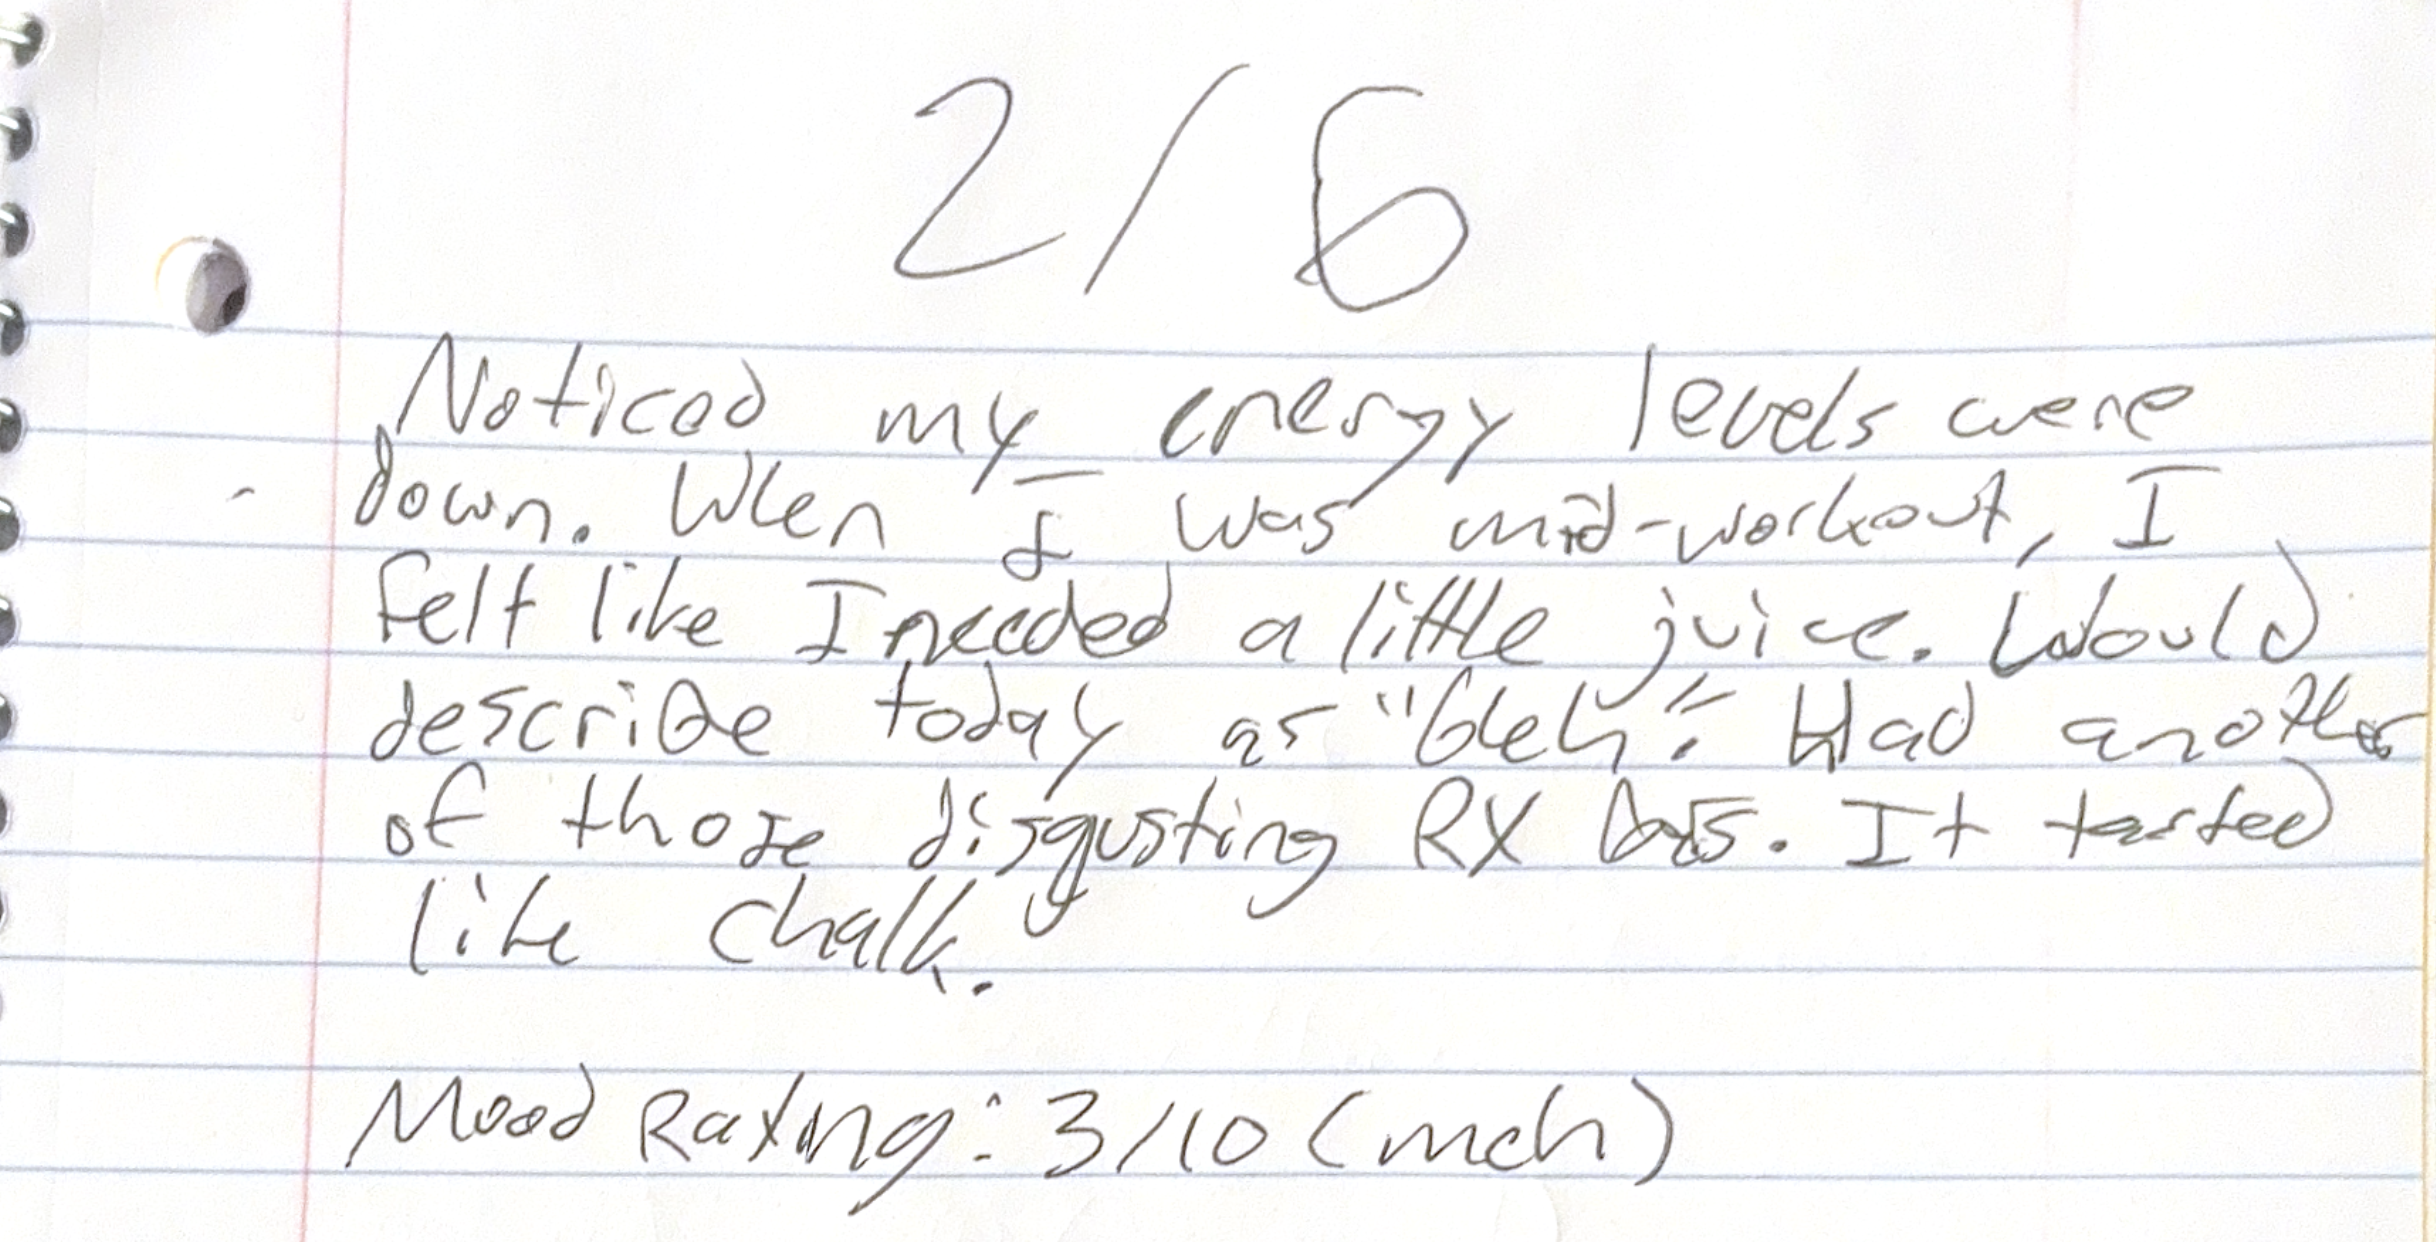 2/6
Noticed my energy levels were
down. When I was mid-workout, I
felt like I needed a little juice. Would
describe today as "bleh". Had another
of those disgusting RX bars. It tasted
like chalk.
Mood Rating: 3/10 (meh)